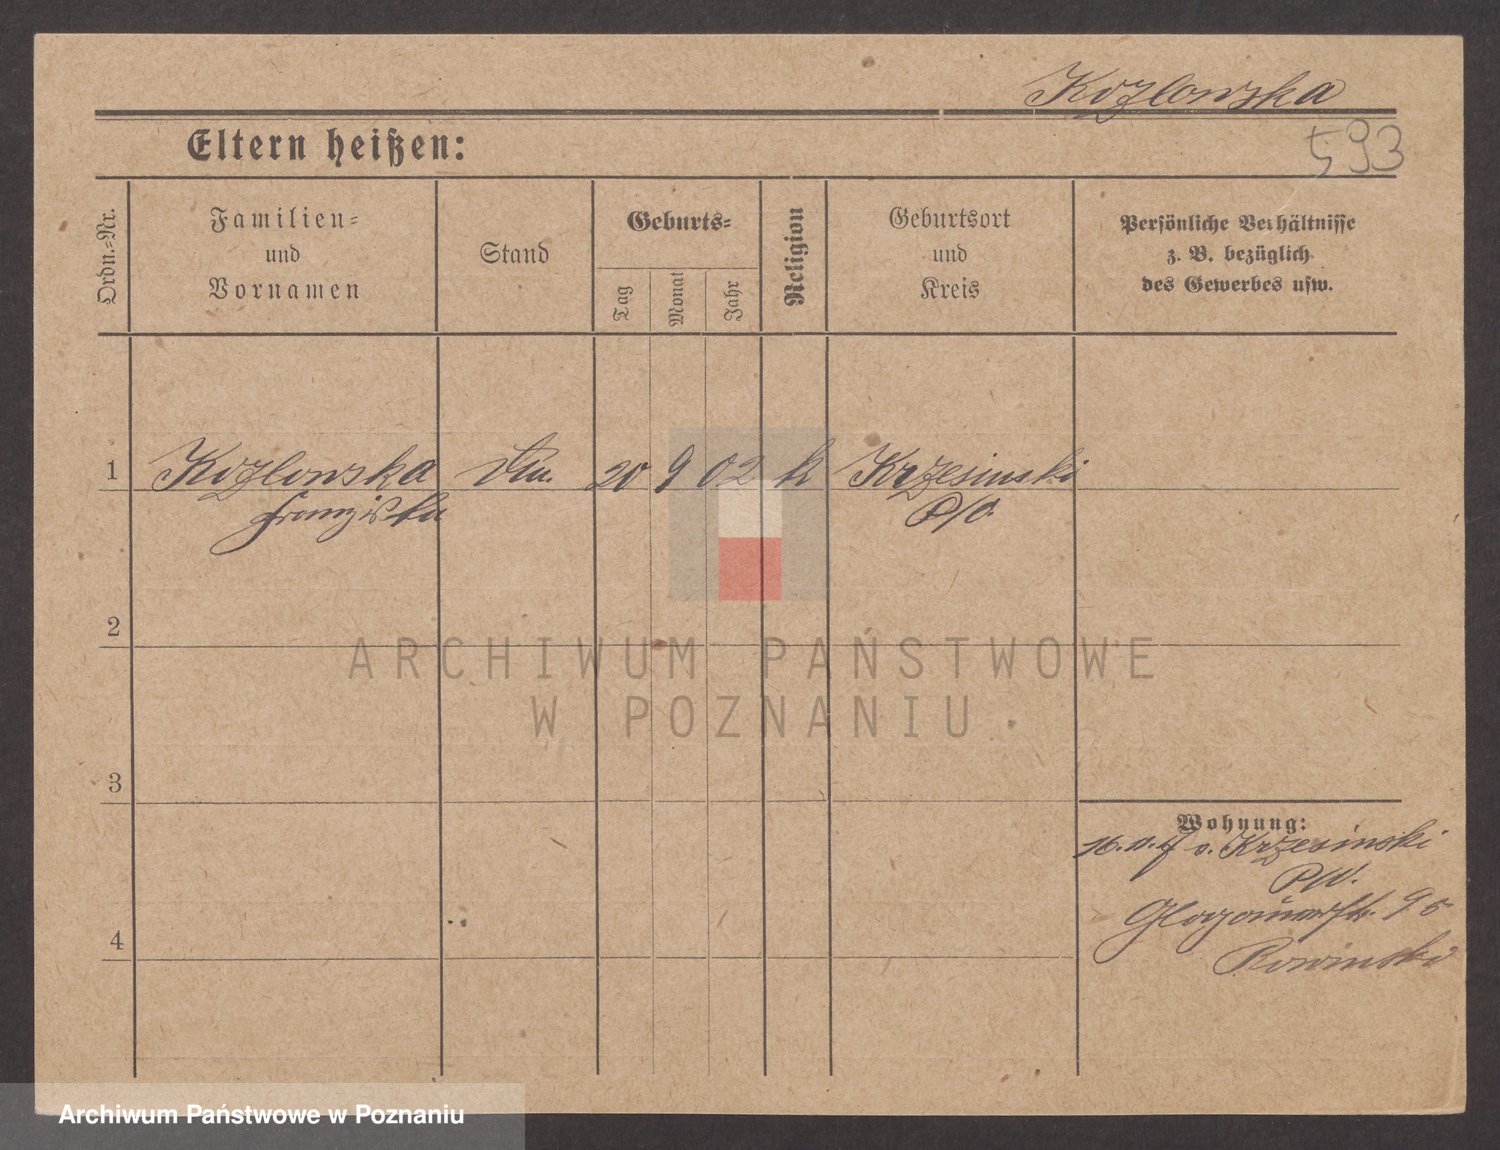 Kozlowska
593
Eltern heißen:
Ordn.-Nr.
Familien-
und
Vornamen
Stand
Geburts-
Tag
Monat
Jahr
Religion
Geburtsort
und
Kreis
Persönliche Verhältnisse
z. B. bezüglich
des Gewerbes usw.
1 Kozlowska 20 9 02 k Krzesinski
Franziska P/O.
2
ARCHIWUM PAŃSTWOWE
W POZNANIU
3
Wohnung:
v. Krzesinski
Glogauerstr. 95
Rowinski
4
Archiwum Państwowe w Poznaniu